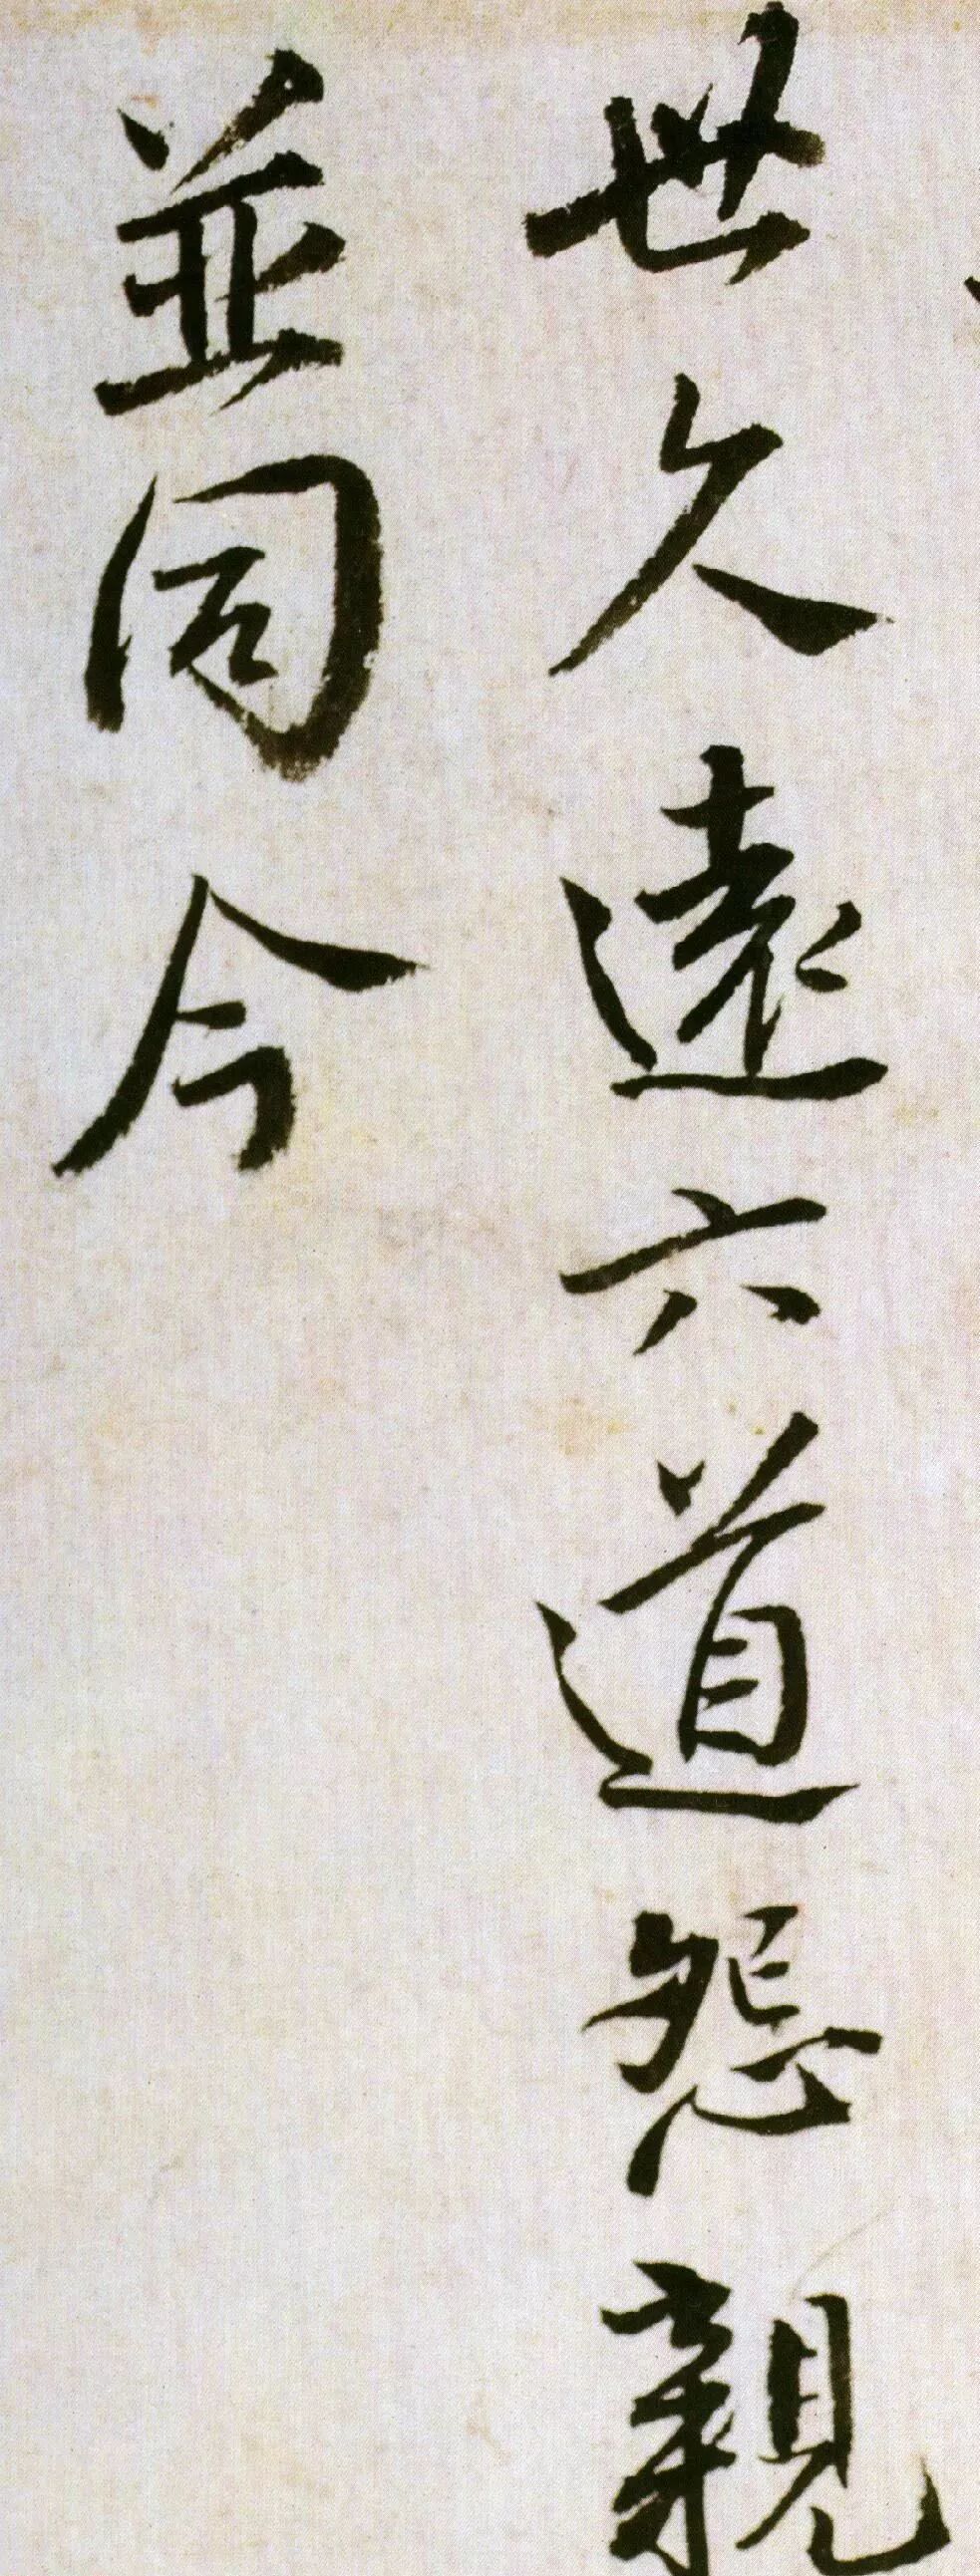 世久遠六道怨親
並同今